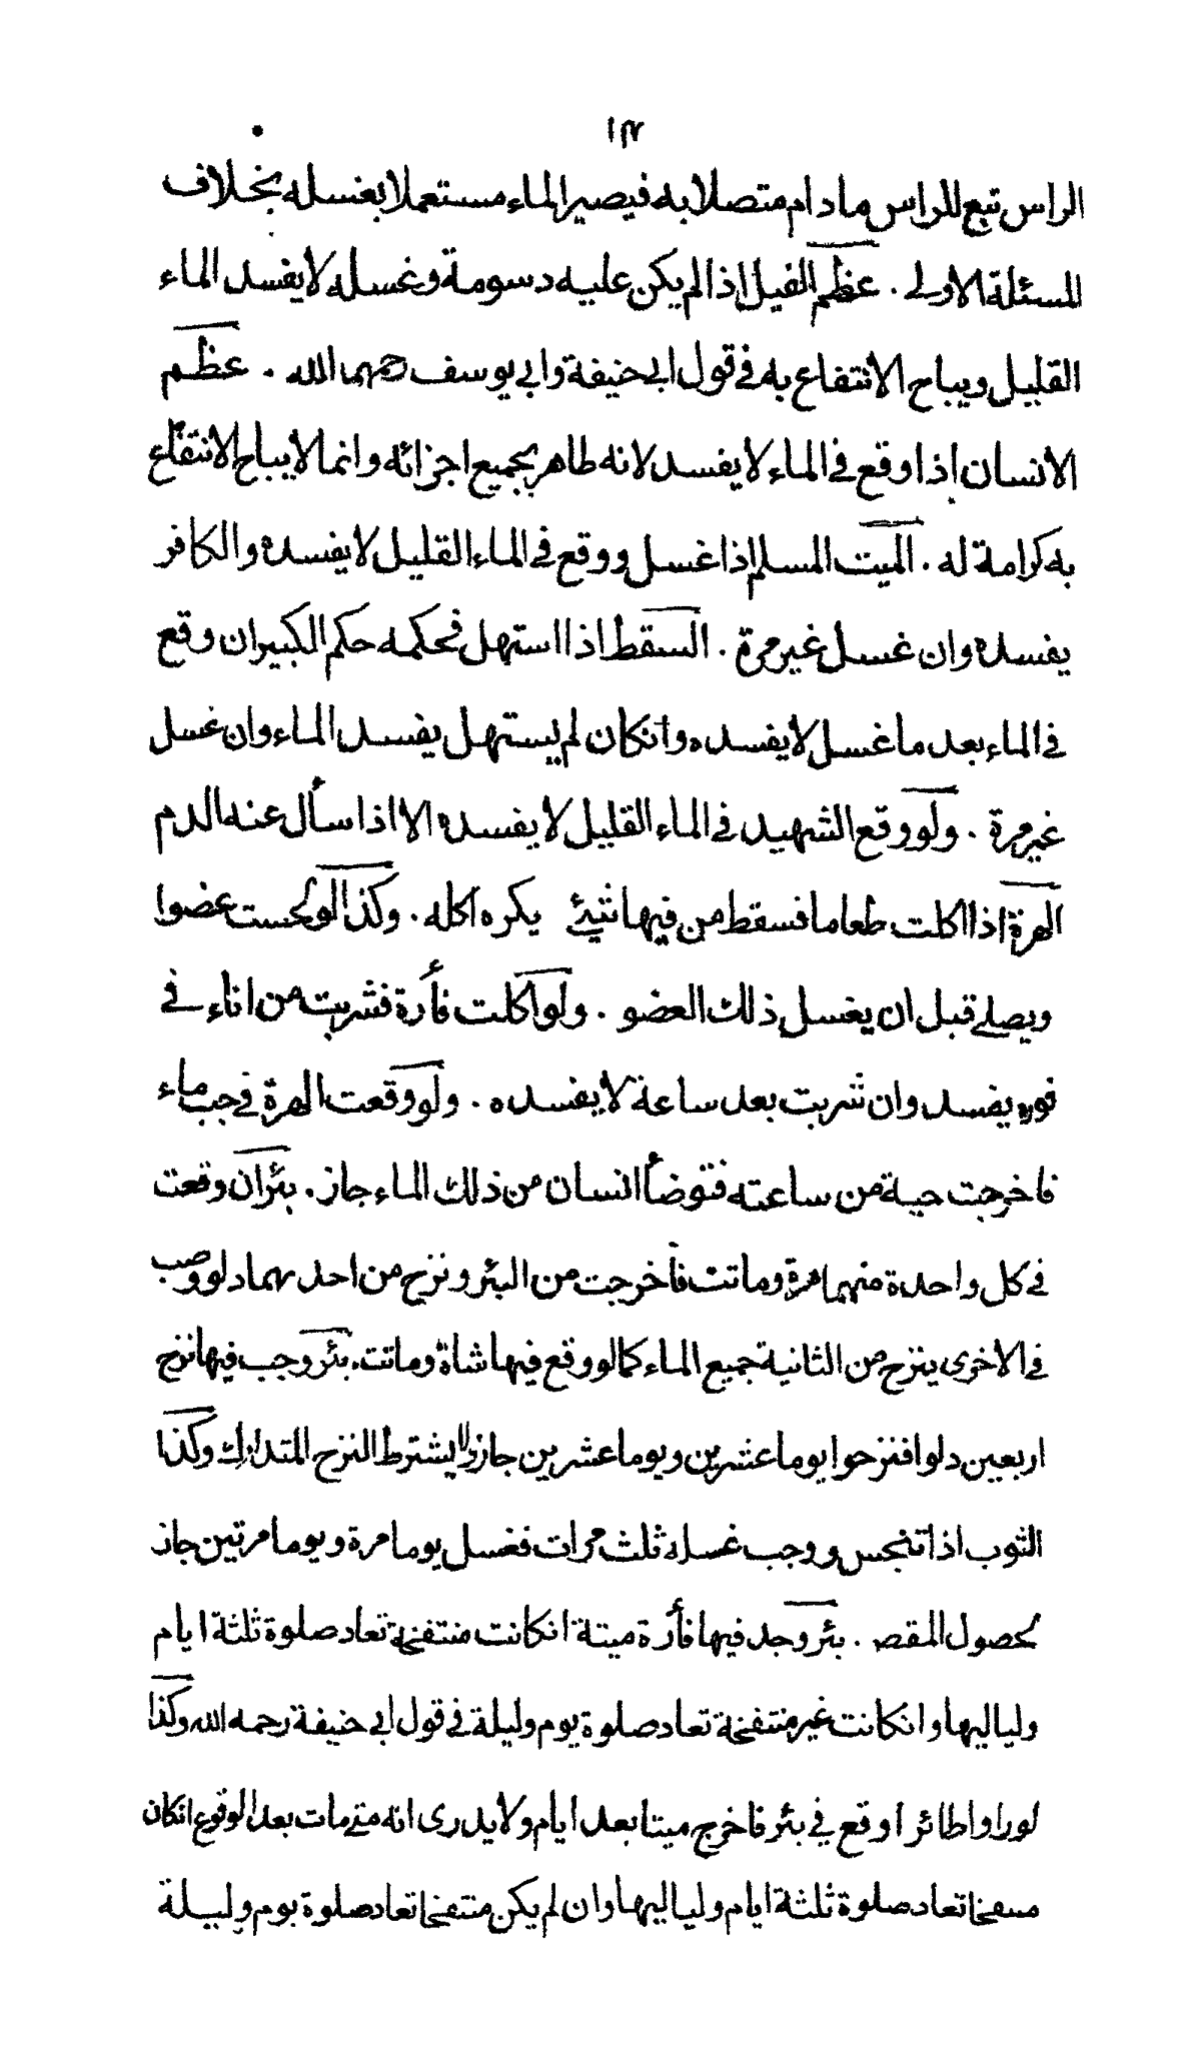 ١٣
الراس تبع للراس مادام متصلا به فيصير الماء مستعملا بغسله بخلاف
المسئلة الاولى . عظم الفيل اذا لم يكن عليه دسومة وغسله لا يفسد الماء
القليل ويباح الانتفاع به في قول ابي حنيفة وابي يوسف رحمهما الله . عظم
الانسان اذا وقع في الماء لا يفسد لانه طاهر بجميع اجزائه وانما لا يباح الانتفاع
به كرامة له . الميت المسلم اذا غسل ووقع في الماء القليل لا يفسده والكافر
يفسده وان غسل غير مرة . السقط اذا استهل فحكمه حكم الكبير ان وقع
في الماء بعد ما غسل لا يفسده وانكان لم يستهل يفسد الماء وان غسل
غير مرة . ولو وقع الشهيد في الماء القليل لا يفسده الا اذا سأل عنه الدم
الهرة اذا اكلت طعاما فسقط من فيها شيئ يكره اكله . وكذا لو لحست عضوا
ويصلي قبل ان يغسل ذلك العضو . ولو اكلت فأرة فشربت من اناء في
فوره يفسد وان شربت بعد ساعة لا يفسده . ولو وقعت الهرة في جب ماء
فاخرجت حية من ساعته فتوضأ انسان من ذلك الماء جاز . بئران وقعت
في كل واحدة منهما هرة وماتت فأخرجت من البئر ونزح من احدهما دلو وصب
في الاخرى ينزح من الثانية جميع الماء كما لو وقع فيها شاة وماتت . بئر وجب فيها نزح
اربعين دلوا فنزحوا يوما عشرين ويوما عشرين جاز ولا يشترط النزح المتدارك وكذا
الثوب اذا تنجس ووجب غسله ثلث مرات فغسل يوما مرة ويوما مرتين جاز
لحصول المقص . بئر وجد فيها فأرة ميتة انكانت منتفخة تعاد صلوة ثلثة ايام
ولياليها وانكانت غير منتفخة تعاد صلوة يوم وليلة في قول ابي حنيفة رحمه الله وكذا
لو راوا طائرا وقع في بئر فاخرج ميتا بعد ايام ولا يدرى انه متى مات بعد الوقوع انكان
منتفخا تعاد صلوة ثلثة ايام ولياليها وان لم يكن منتفخا تعاد صلوة يوم وليلة